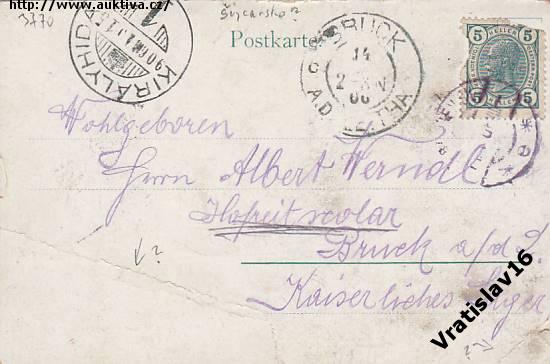 http://www.auktiva.cz/
3770
Švýcarsko?
KIRÁLYHIDA
906
Postkarte
BRUCK
14
A.D. LEITHA
5 HELLER 5
5 5
Wohlgeboren
Herrn Albert Werndl
Hofreitscolar
Bruck a/d L
Kaiserliches Lager
?
?
Vratislav16